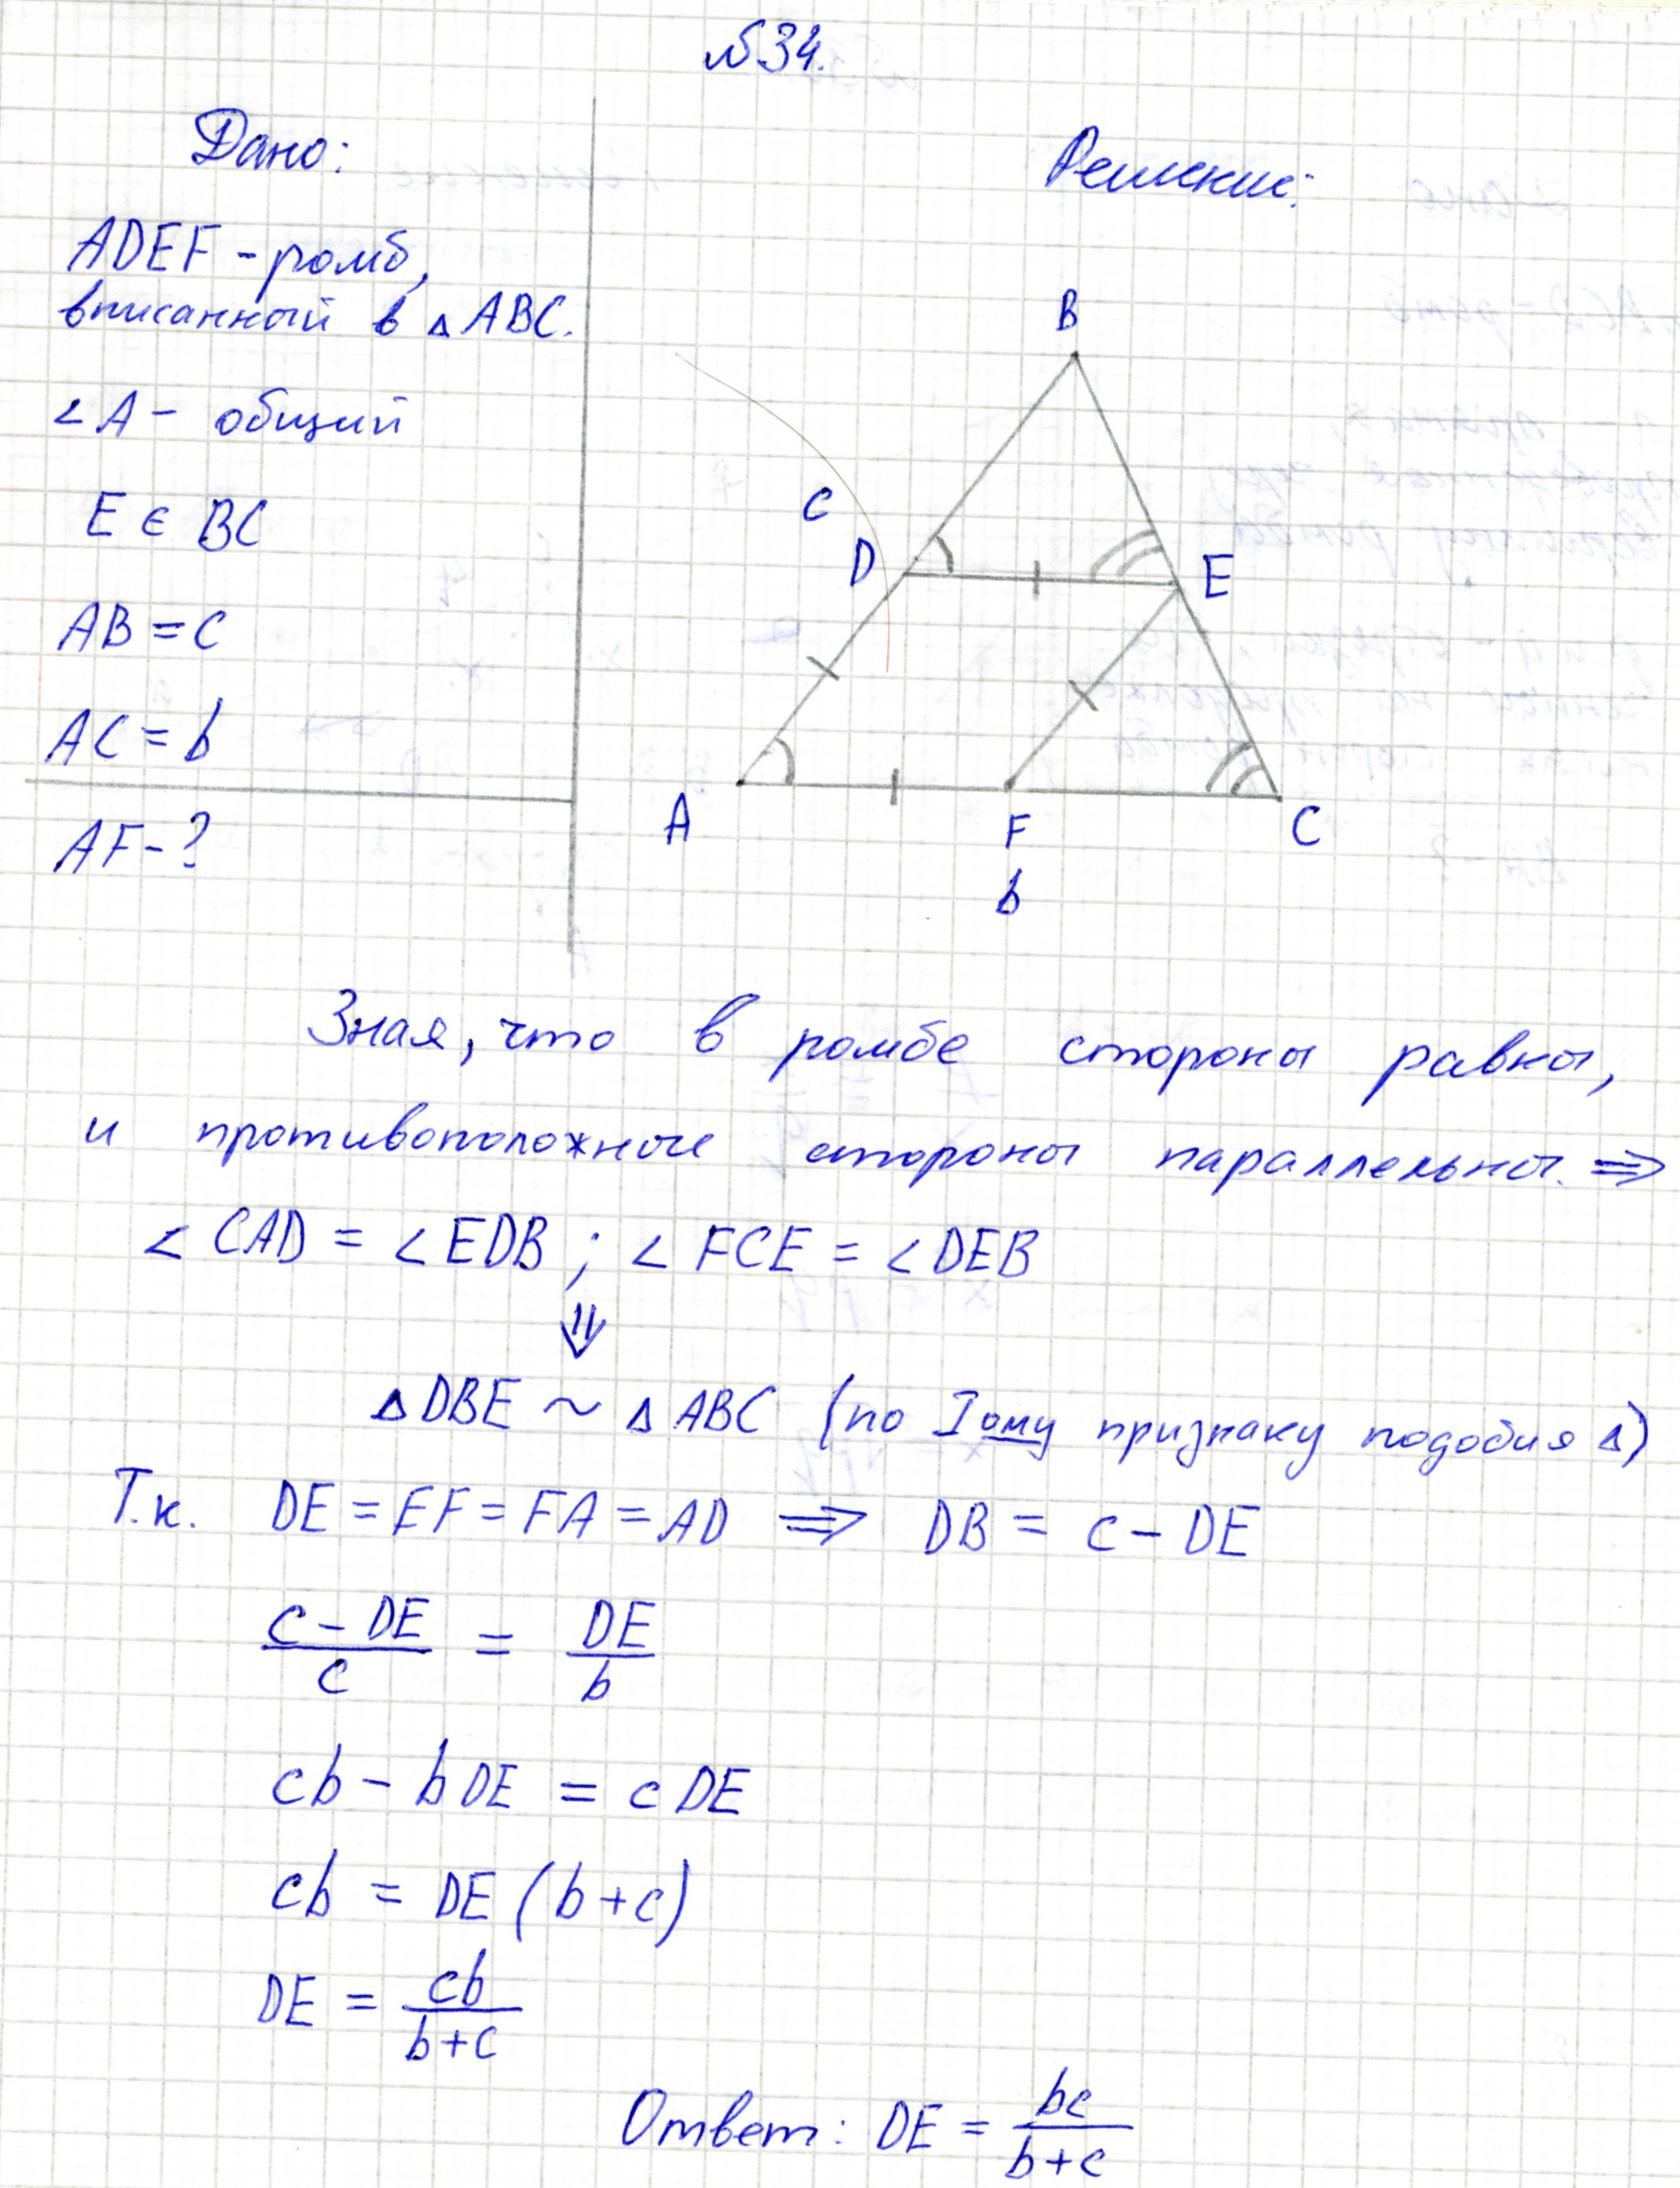 №34.
Дано:
ADEF - ромб,
вписанный в △ABC.
∠A - общий
E ∈ BC
AB = c
AC = b
AF - ?
Решение:
B
C
D
E
A
F
C
b
Зная, что в ромбе стороны равны,
и противоположные стороны параллельны. ⇒
∠CAD = ∠EDB ; ∠FCE = ∠DEB
⇓
△DBE ~ △ABC (по Iому признаку подобия △)
Т.к. DE = EF = FA = AD ⇒ DB = c - DE
(c - DE)/c = DE/b
cb - bDE = cDE
cb = DE (b + c)
DE = cb/(b+c)
Ответ: DE = bc/(b+c)